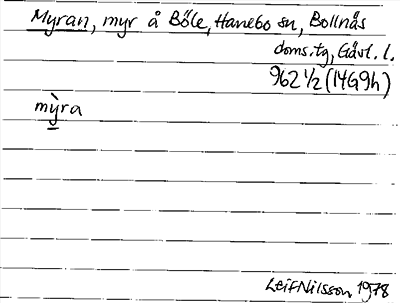 Myran, myr å Böle, Hanebo sn, Bollnäs
doms.tg, Gävl. l.
962 1/2 (14G9h)
mỳra
Leif Nilsson 1978